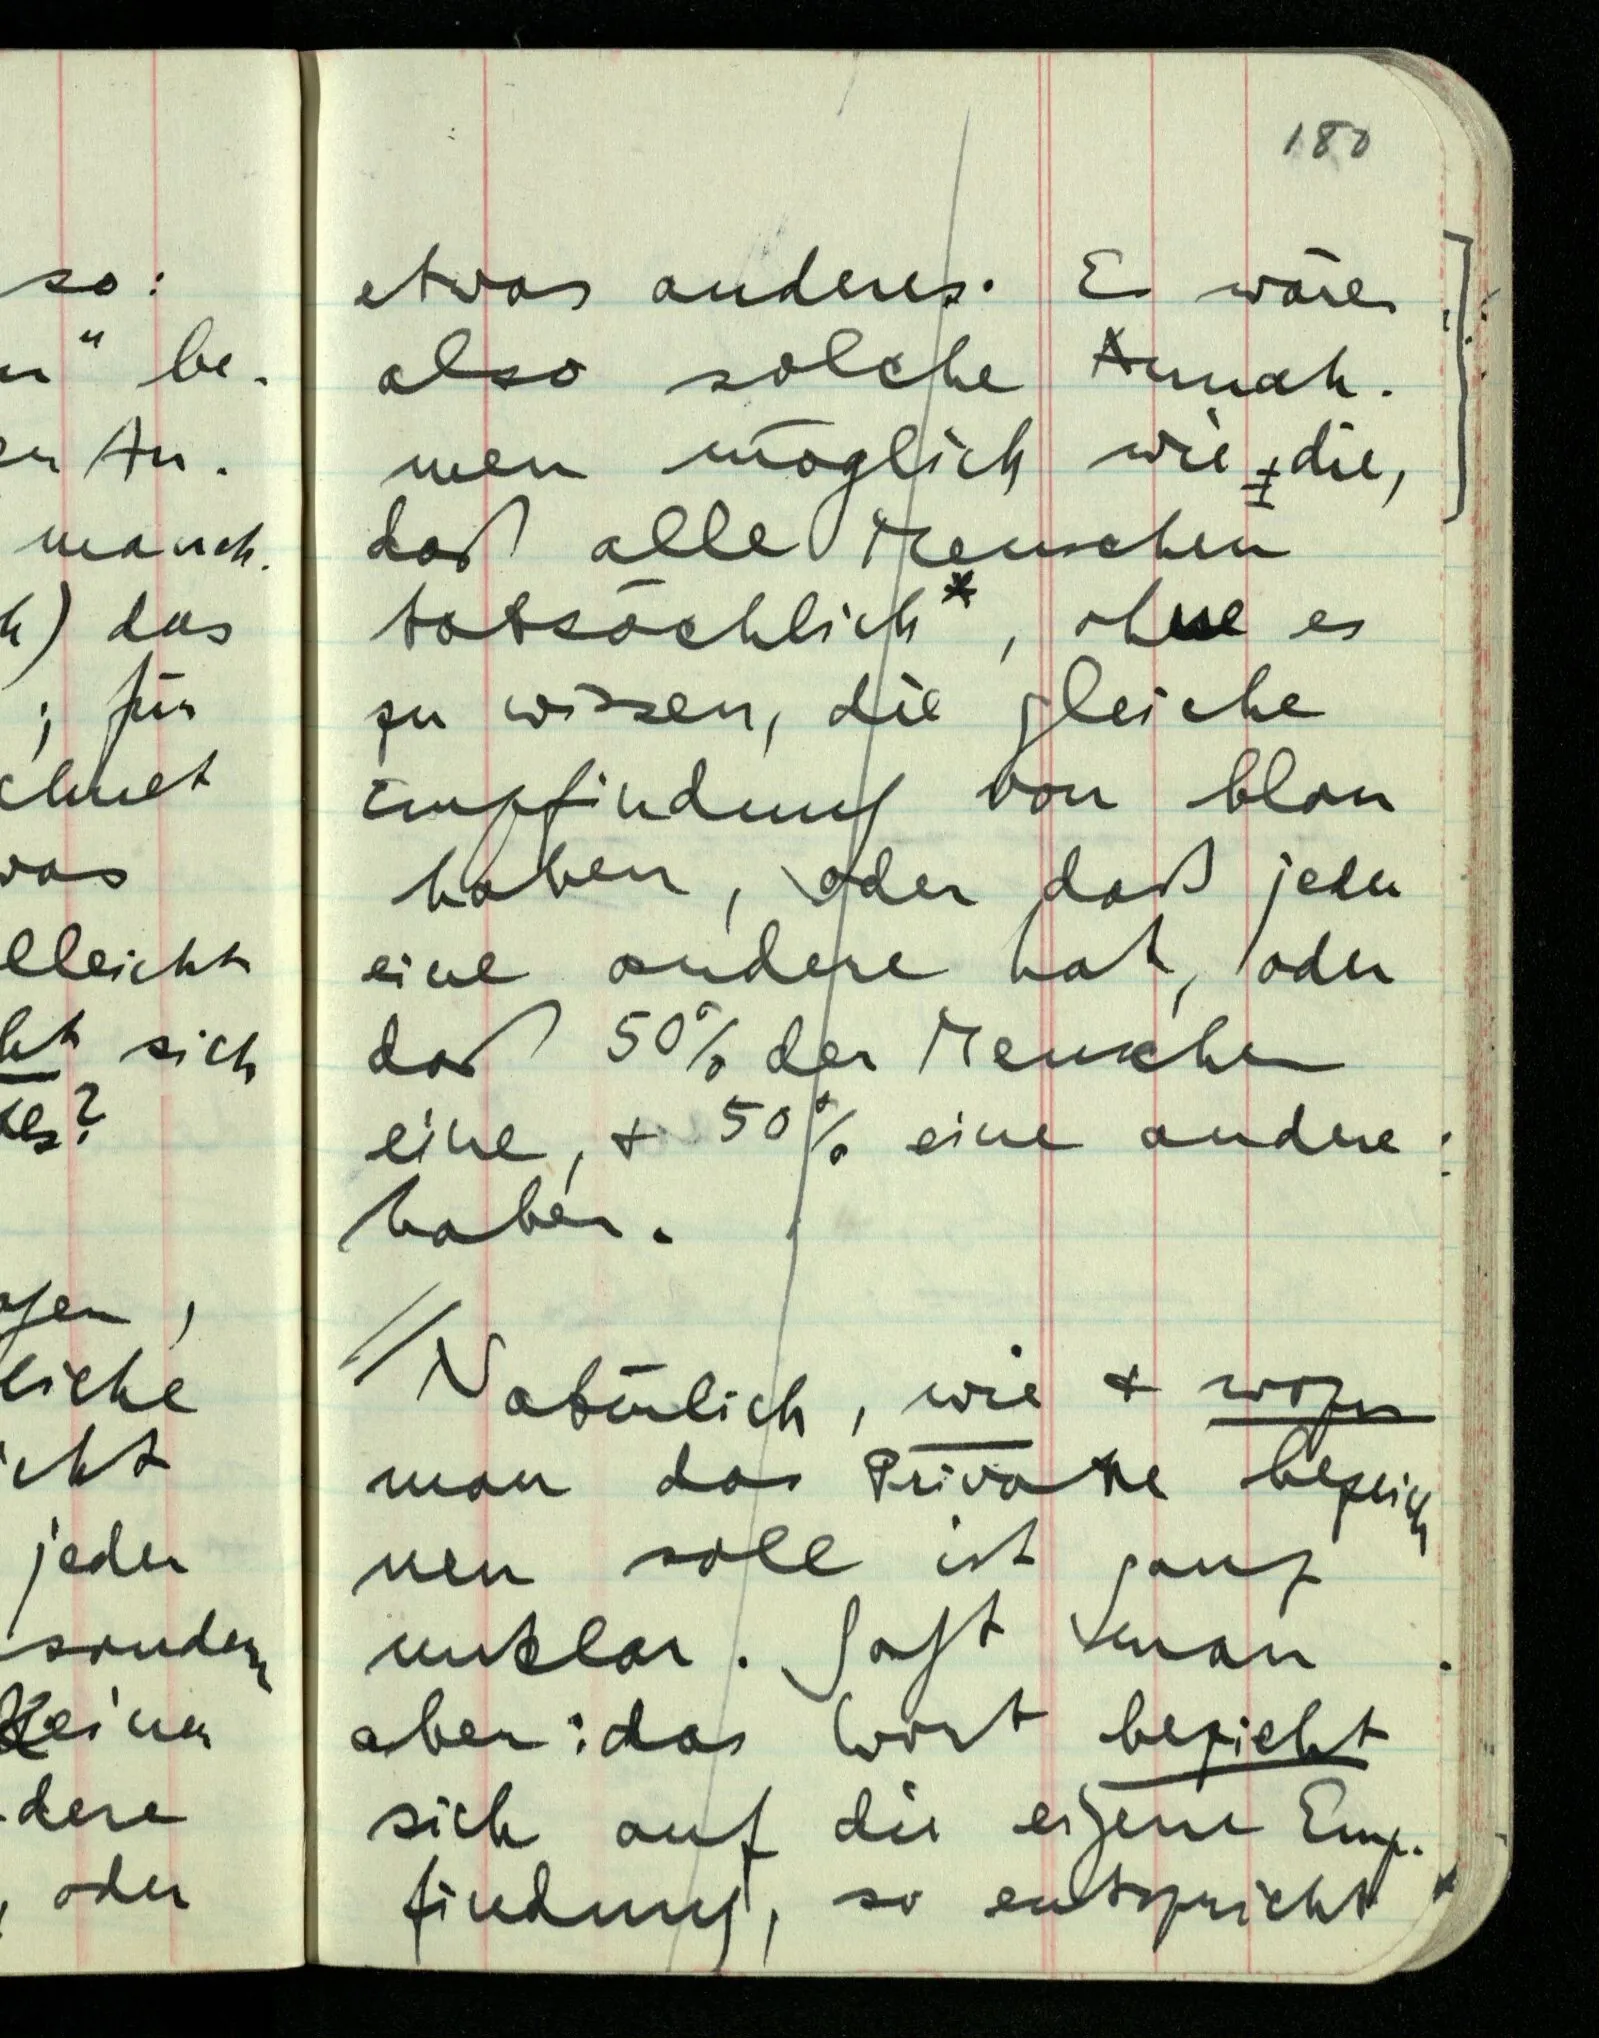 so:
" be-
An-
manch-
das
; für
chnet
was
elleicht
sich
jeder
sondern
keiner
dere
, oder
180
etwas anderes. Es wären
also solche Annah-
men möglich wie die,
daß alle Menschen
tatsächlich*, ohne es
zu wissen, die gleiche
Empfindung von blau
haben, oder daß jeder
eine andere hat, oder
daß 50% der Menschen
eine, + 50% eine andere
haben.
// Natürlich, wie + wozu
man das Private bezeich
nen soll ist ganz
unklar. Sagt man
aber: das Wort bezieht
sich auf die eigene Emp-
findung, so entspricht